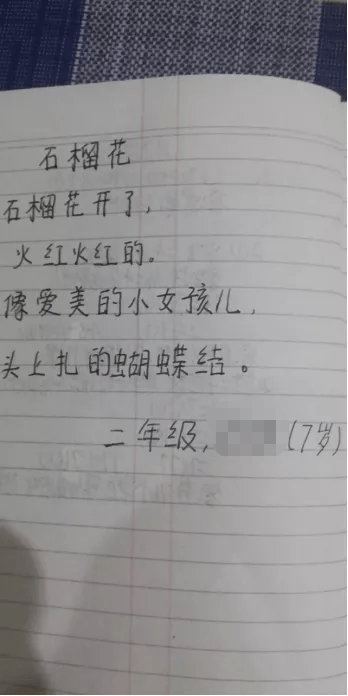 石榴花
石榴花开了，
火红火红的。
像爱美的小女孩儿，
头上扎的蝴蝶结。
二年级，（7岁）